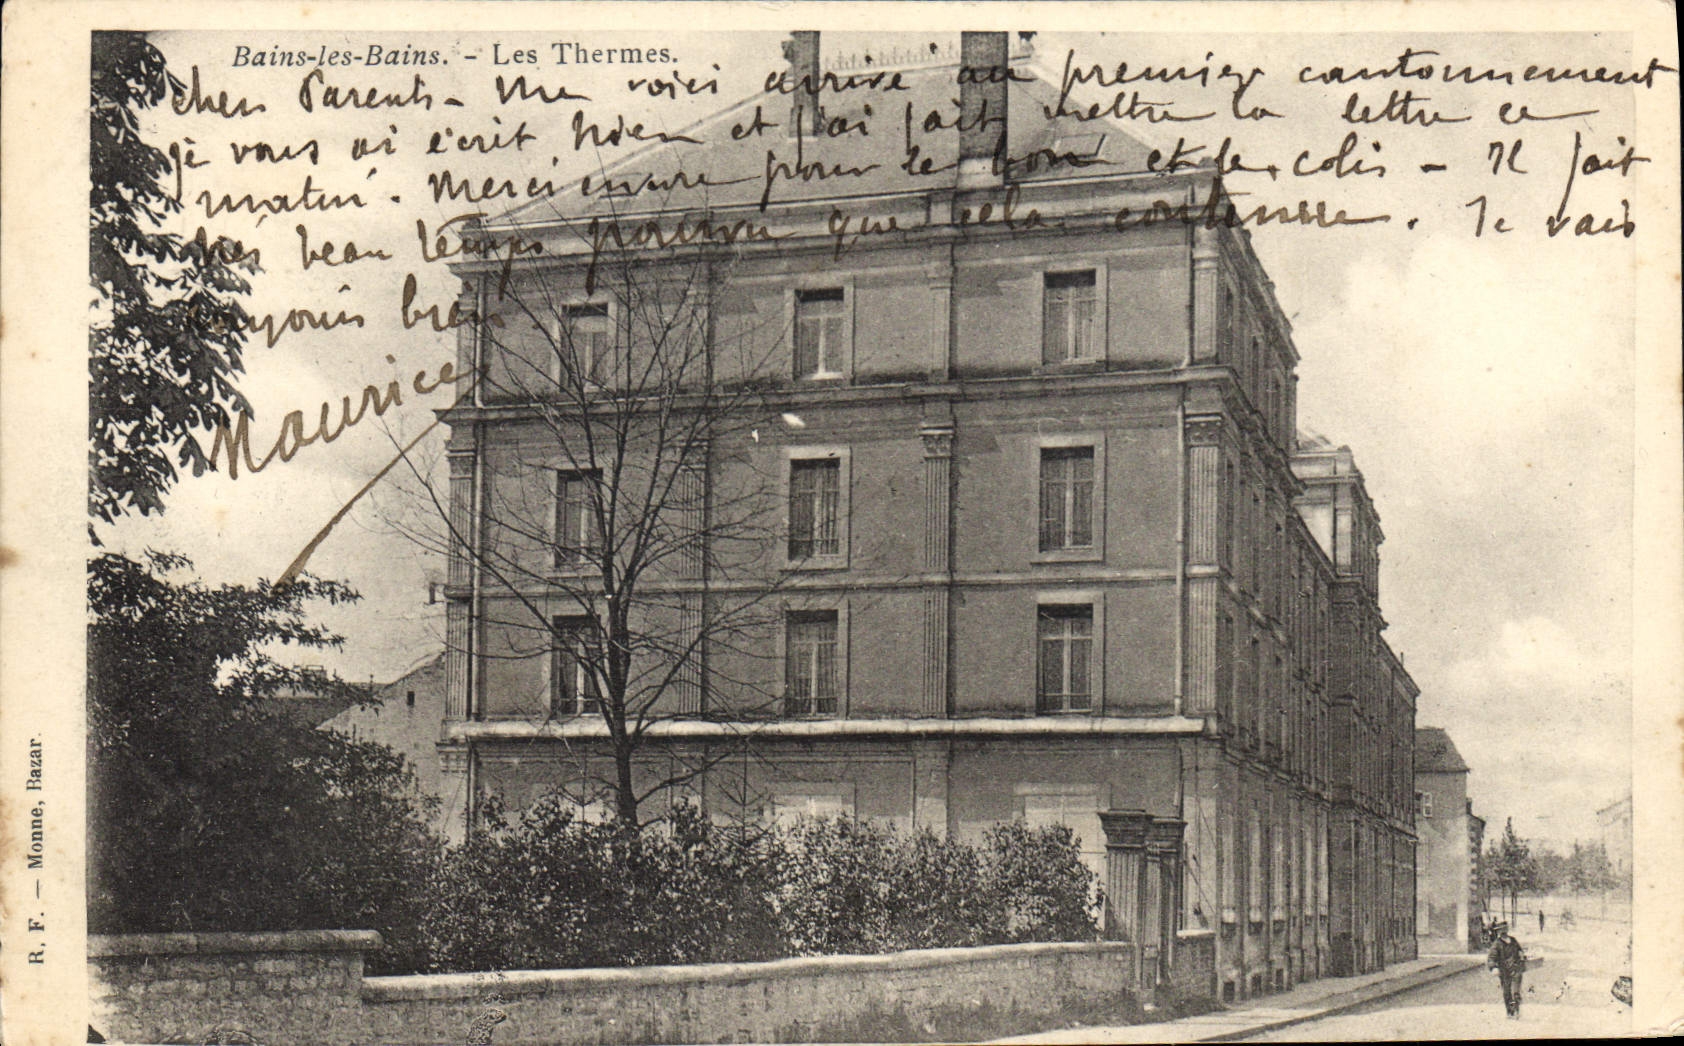 Bains-les-Bains. - Les Thermes.
chers Parents - Me voici arrivé au premier cantonnement
je vous ai écrit hier et j'ai fait mettre la lettre ce
matin. Merci encore pour le bon et le colis - Il fait
très beau temps pourvu que cela continue. Je vais
toujours bien
Maurice
R. F. — Monne, Bazar.